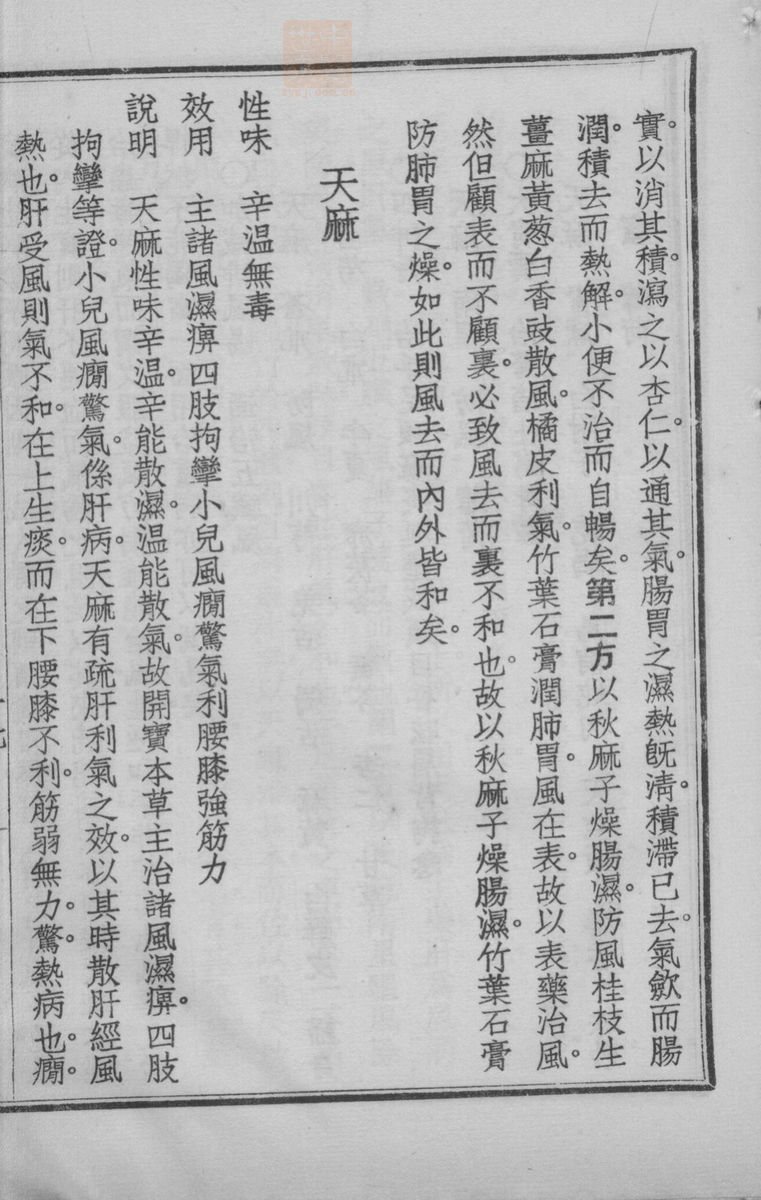 實以消其積。瀉之以杏仁。以通其氣。腸胃之濕熱旣淸。積滯已去。氣歛而腸
潤。積去而熱解。小便不治而自暢矣。第二方以秋麻子燥腸濕。防風桂枝生
薑麻黃葱白香豉散風。橘皮利氣。竹葉石膏潤肺胃。風在表。故以表藥治風。
然但顧表而不顧裏。必致風去而裏不和也。故以秋麻子燥腸濕。竹葉石膏
防肺胃之燥。如此則風去而內外皆和矣。
天麻
性味　辛温無毒
效用　主諸風濕痹四肢拘攣小兒風癇驚氣利腰膝強筋力
說明　天麻性味辛温。辛能散濕。温能散氣。故開寶本草主治諸風濕痹。四肢
拘攣等證。小兒風癇驚氣。係肝病。天麻有疏肝利氣之效。以其時散肝經風
熱也。肝受風則氣不和。在上生痰。而在下腰膝不利。筋弱無力。驚。熱病也。癇。